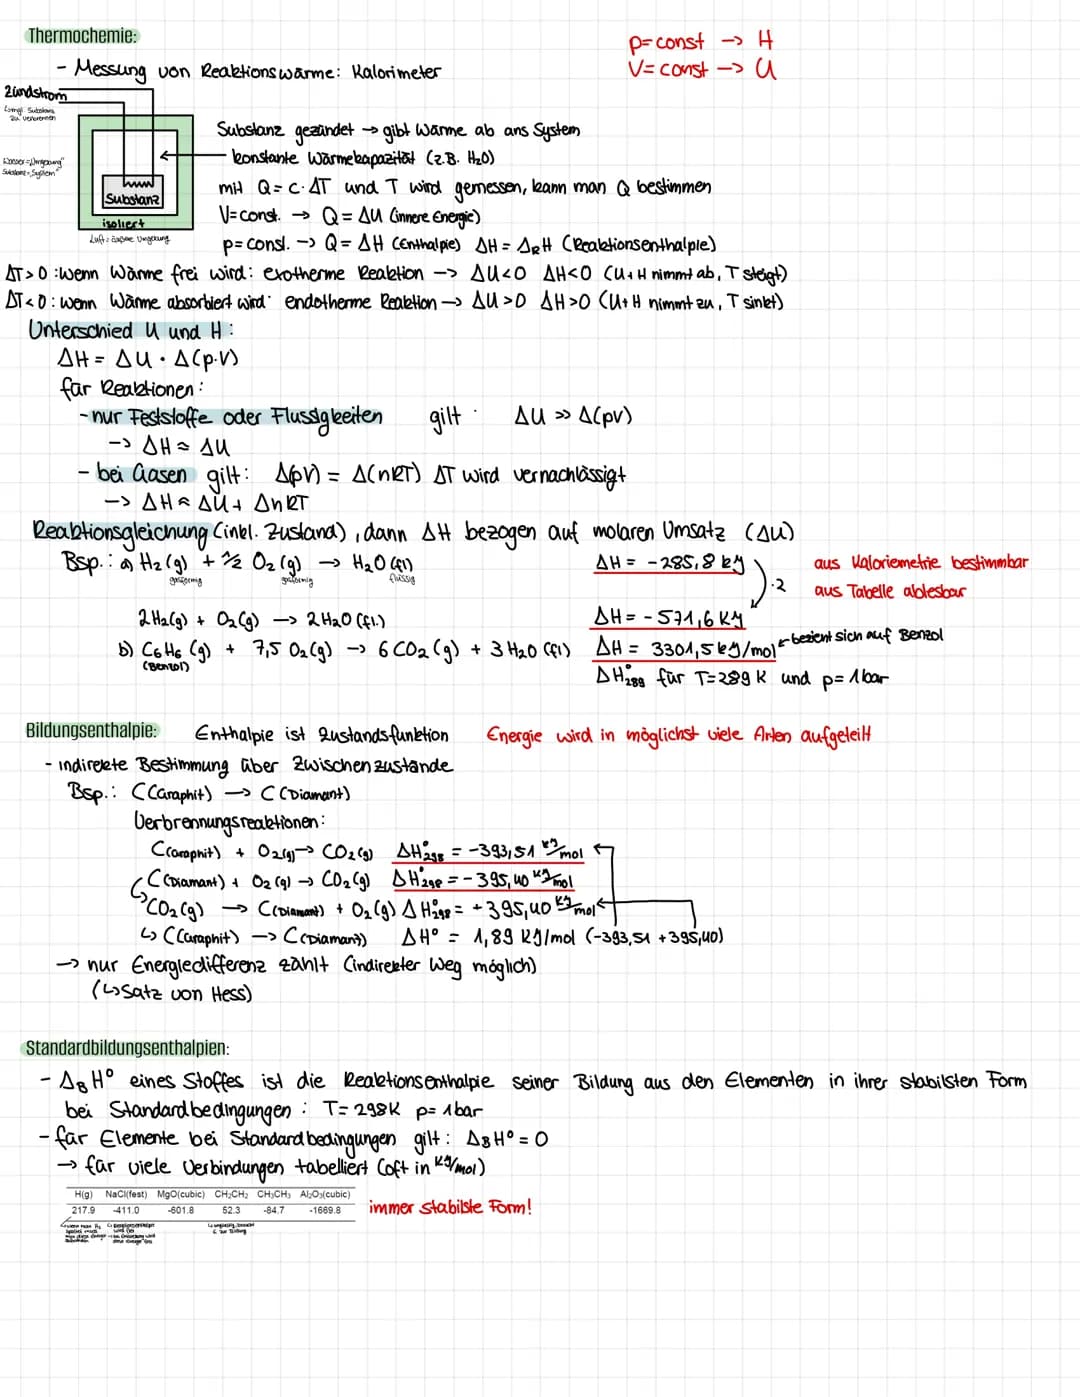 Thermochemie:
p=const → H
V=const → U
- Messung von Reaktionswärme: Kalorimeter
Zündstrom
Substanz gezündet → gibt Wärme ab ans System
konstante Wärmekapazität (z.B. H₂O)
mit Q = c·ΔT und T wird gemessen, kann man Q bestimmen
Substanz
V=const. → Q = ΔU (innere Energie)
isoliert
Luft = äußere Umgebung
p=const. → Q = ΔH (Enthalpie) ΔH = ΔRH (Reaktionsenthalpie)
ΔT>0 : wenn Wärme frei wird: exotherme Reaktion → ΔU<0 ΔH<0 (U+H nimmt ab, T steigt)
ΔT<0 : wenn Wärme absorbiert wird: endotherme Reaktion → ΔU>0 ΔH>0 (U+H nimmt zu, T sinkt)
Unterschied U und H:
ΔH = ΔU · Δ(p·V)
für Reaktionen:
- nur Feststoffe oder Flüssigkeiten gilt: ΔU >> Δ(pV)
→ ΔH ≈ ΔU
- bei Gasen gilt: Δ(pV) = Δ(nRT) ΔT wird vernachlässigt
→ ΔH ≈ ΔU + ΔnRT
Reaktionsgleichung (inkl. Zustand), dann ΔH bezogen auf molaren Umsatz (ΔU)
Bsp.: a) H₂(g) + ½ O₂(g) → H₂O(fl) ΔH = -285,8 kJ
gasförmig gasförmig flüssig
·2
aus Kaloriemetrie bestimmbar
aus Tabelle ablesbar
2H₂(g) + O₂(g) → 2H₂O(fl.) ΔH = -571,6 KJ
b) C₆H₆(g) + 7,5 O₂(g) → 6CO₂(g) + 3H₂O(fl) ΔH = 3301,5 kJ/mol ← bezient sich auf Benzol
(Benzol)
ΔH°₂₈₉ für T=289 K und p=1bar
Bildungsenthalpie: Enthalpie ist Zustandsfunktion Energie wird in möglichst viele Arten aufgeteilt
- indirekte Bestimmung über Zwischenzustände
Bsp.: C(Graphit) → C(Diamant)
Verbrennungsreaktionen:
C(Graphit) + O₂(g) → CO₂(g) ΔH°₂₉₈ = -393,51 kJ/mol
C(Diamant) + O₂(g) → CO₂(g) ΔH°₂₉₈ = -395,40 kJ/mol
CO₂(g) → C(Diamant) + O₂(g) ΔH°₂₉₈ = +395,40 kJ/mol
↳ C(Graphit) → C(Diamant) ΔH° = 1,89 KJ/mol (-393,51 +395,40)
→ nur Energiedifferenz zählt (indirekter Weg möglich)
(↳Satz von Hess)
Standardbildungsenthalpien:
- ΔBH° eines Stoffes ist die Reaktionsenthalpie seiner Bildung aus den Elementen in ihrer stabilsten Form
bei Standardbedingungen: T=298K p=1bar
- für Elemente bei Standardbedingungen gilt: ΔBH° = 0
→ für viele Verbindungen tabelliert (oft in KJ/mol)
H(g) NaCl(fest) MgO(cubic) CH₂CH₂ CH₃CH₃ Al₂O₃(cubic)
217.9 -411.0 -601.8 52.3 -84.7 -1669.8
immer stabilste Form!